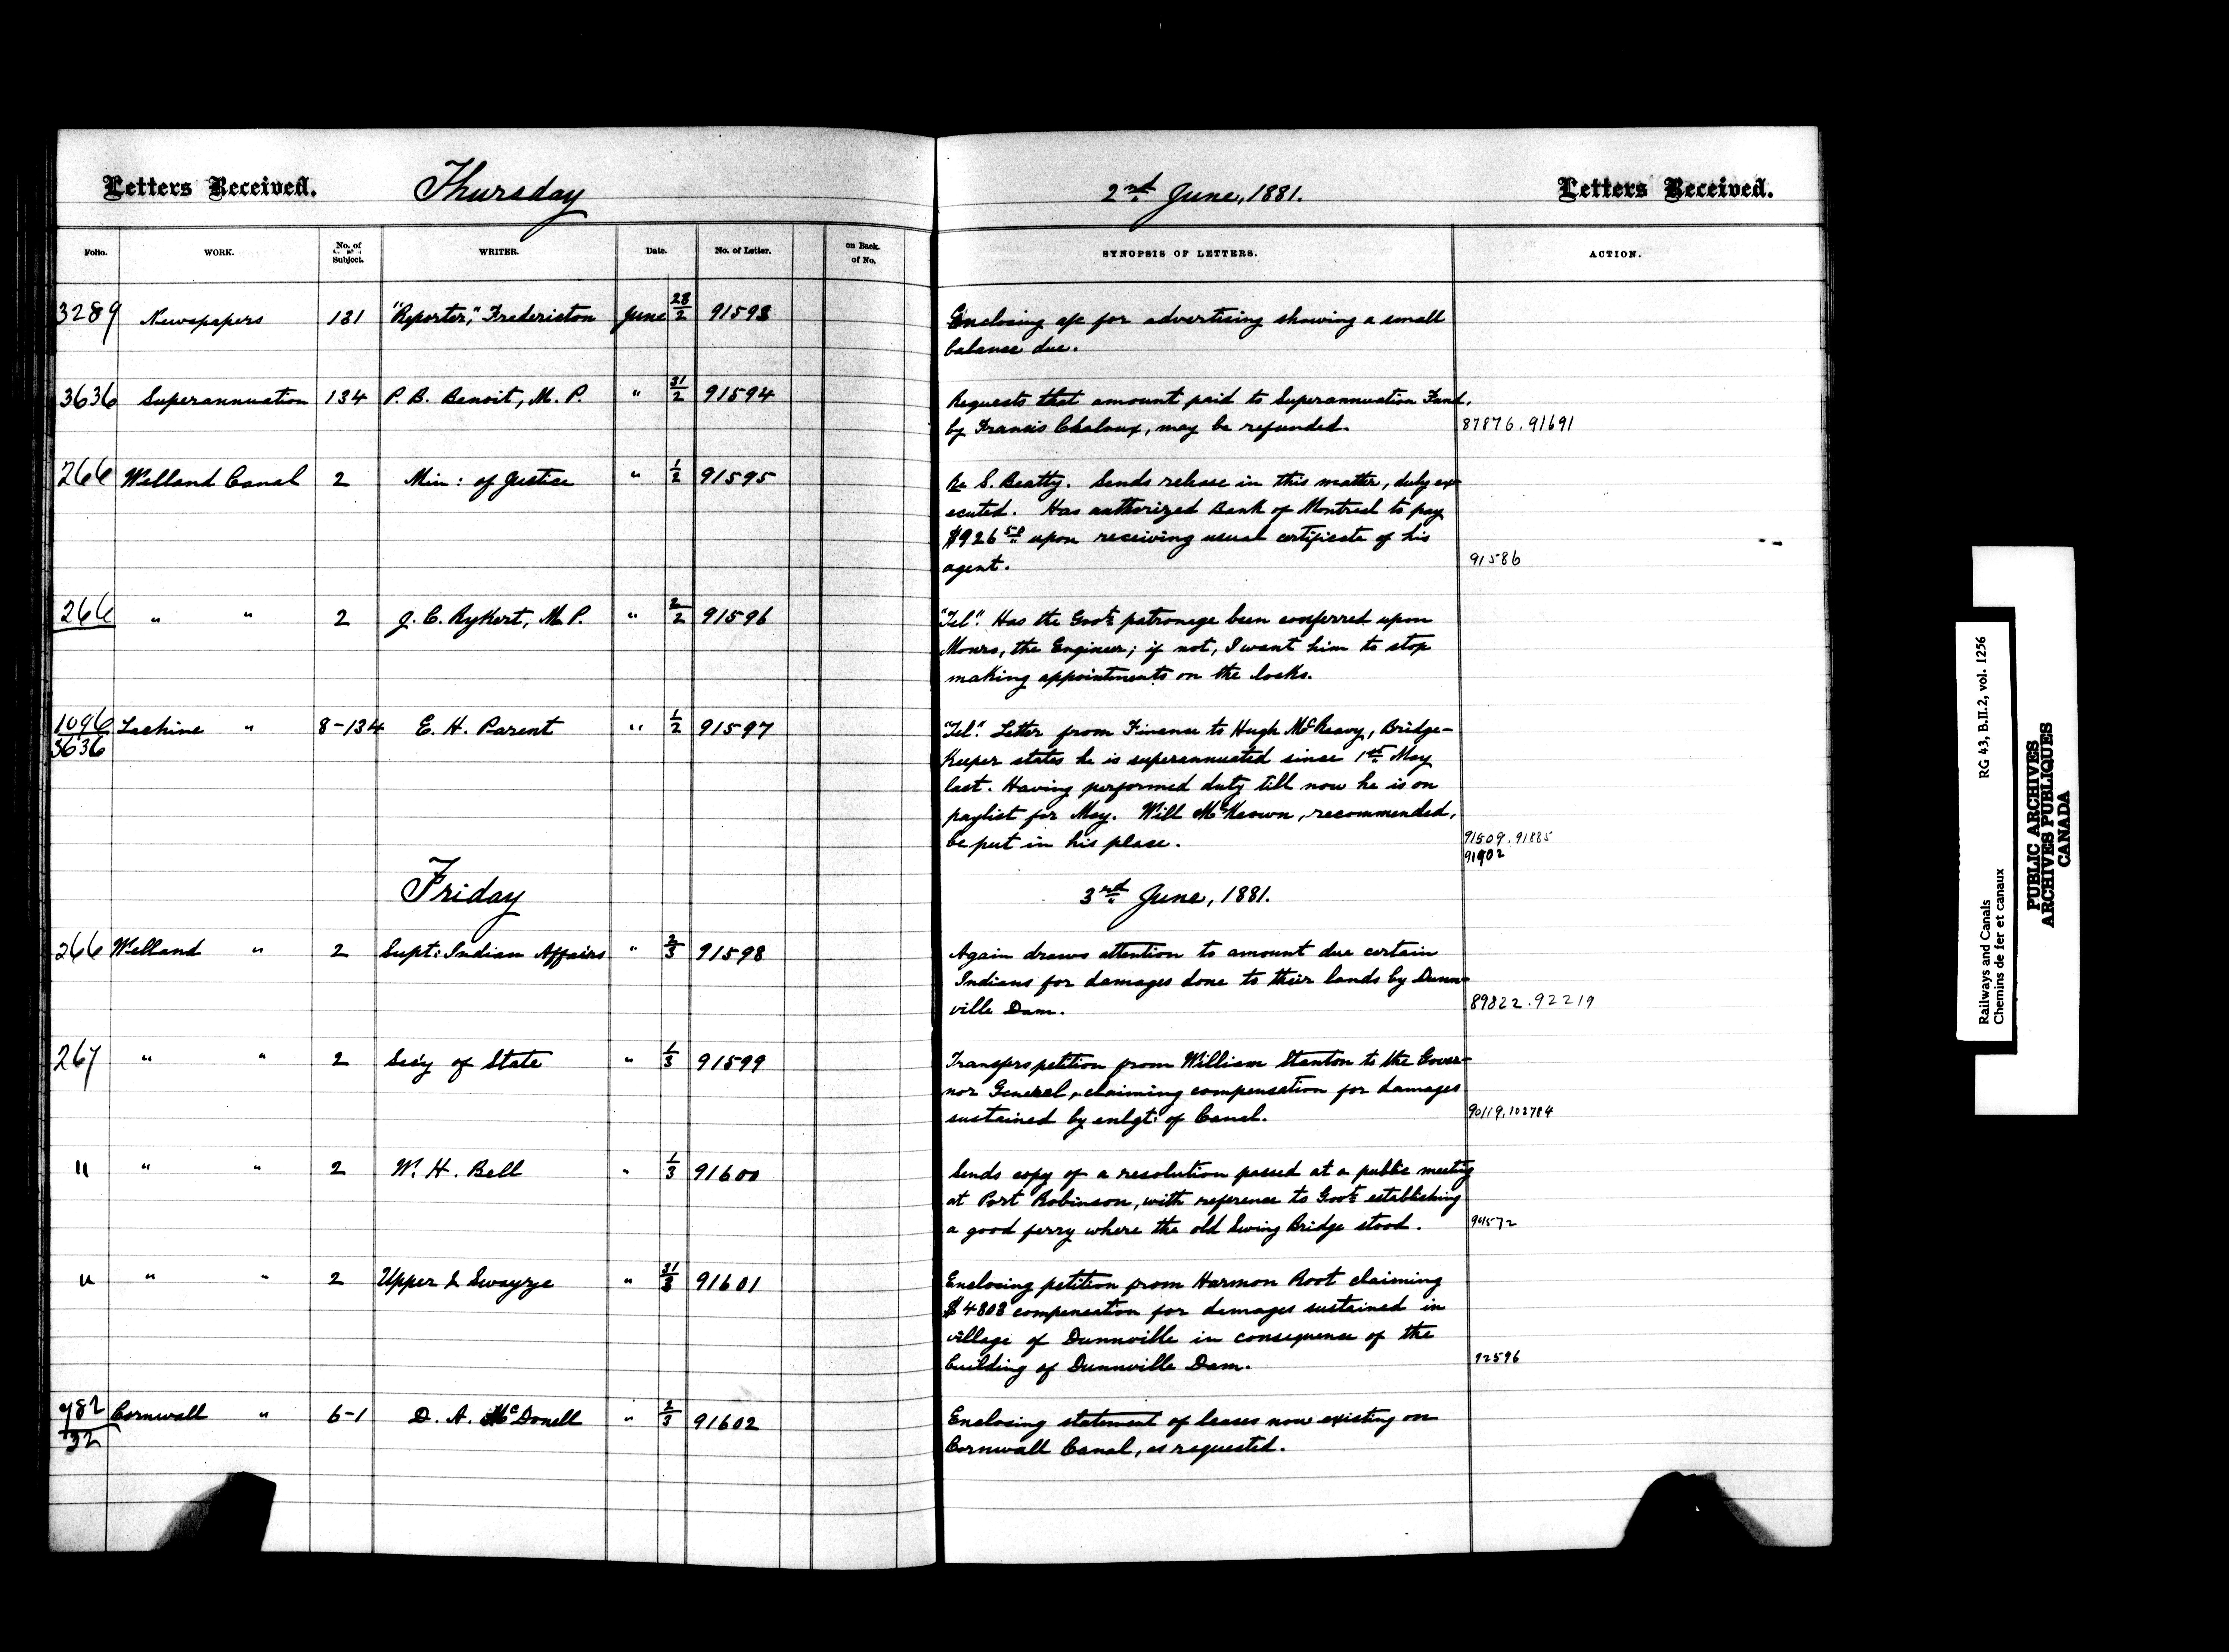 Letters Received. Thursday 2nd June, 1881. Letters Received.
Folio. WORK. No. of Subject. WRITER. Date. No. of Letter. on Back of No. SYNOPSIS OF LETTERS. ACTION.
3289 Newspapers 131 "Reporter," Fredericton June 28/2 91593 Enclosing a/c for advertising showing a small
balance due.
3636 Superannuation 134 P. B. Benoit, M. P. " 31/2 91594 Requests that amount paid to Superannuation Fund,
by Francis Chaloux, may be refunded. 87876. 91691
266 Welland Canal 2 Min: of Justice " 1/2 91595 Re S. Beatty. Sends release in this matter, duly ex-
ecuted. Has authorized Bank of Montreal to pay
$926 50 upon receiving usual certificate of his
agent. 91586
266 " " 2 J. C. Rykert, M. P. " 2/2 91596 "Tel." Has the Govt. patronage been conferred upon
Monro, the Engineer; if not, I want him to stop
making appointments on the locks.
1096/3636 Lachine " 8-134 E. H. Parent " 1/2 91597 "Tel." Letter from Finance to Hugh McReavy, Bridge-
keeper states he is superannuated since 1st May
last. Having performed duty till now he is on
paylist for May. Will McKeown, recommended,
be put in his place. 91509. 91885
91902
Friday 3rd June, 1881.
266 Welland " 2 Supt: Indian Affairs " 2/3 91598 Again draws attention to amount due certain
Indians for damages done to their lands by Dunn-
ville Dam. 89822. 92219
267 " " 2 Sec'y of State " 1/3 91599 Transfers petition from William Stanton to the Gover-
nor General, claiming compensation for damages
sustained by enlgt: of Canal. 90119. 102784
" " " 2 W. H. Bell " 1/3 91600 Sends copy of a resolution passed at a public meeting
at Port Robinson, with reference to Govt. establishing
a good ferry where the old Swing Bridge stood. 91572
" " " 2 Upper & Swayze " 31/3 91601 Enclosing petition from Harmon Root claiming
$4803 compensation for damages sustained in
village of Dunnville in consequence of the
building of Dunnville Dam. 92596
982/32 Cornwall " 6-1 D. A. McDonell " 2/3 91602 Enclosing statement of leases now existing on
Cornwall Canal, as requested.
Railways and Canals RG 43, B.II.2, vol. 1256
Chemins de fer et canaux
PUBLIC ARCHIVES
ARCHIVES PUBLIQUES
CANADA